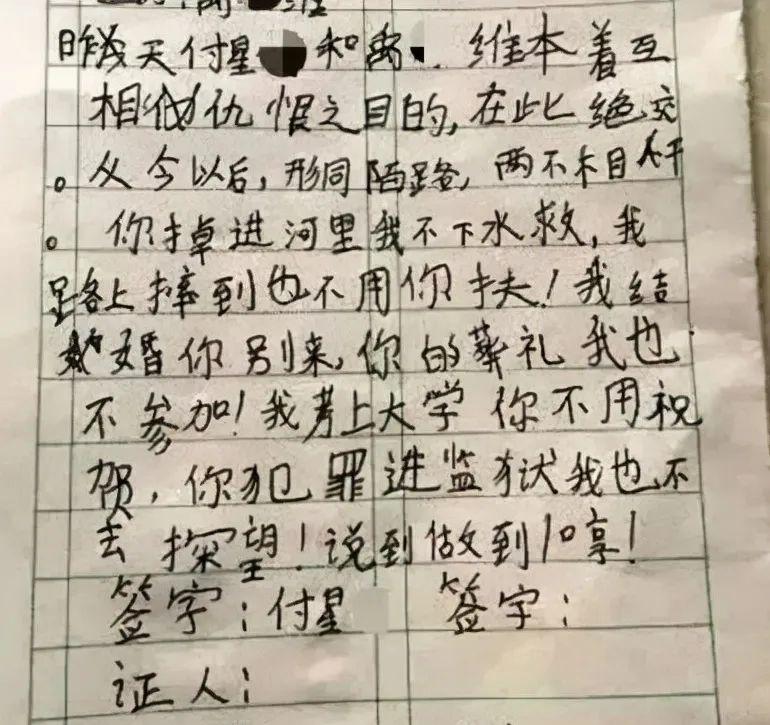 昨天付星 和禹 维本着互
相仇恨之目的,在此绝交
。从今以后,形同陌路,两不相干
。你掉进河里我不下水救,我
路上摔到也不用你扶!我结
婚你别来,你的葬礼我也
不参加!我考上大学你不用祝
贺,你犯罪进监狱我也不
去探望!说到做到!哼!
签字:付星 签字:
证人: